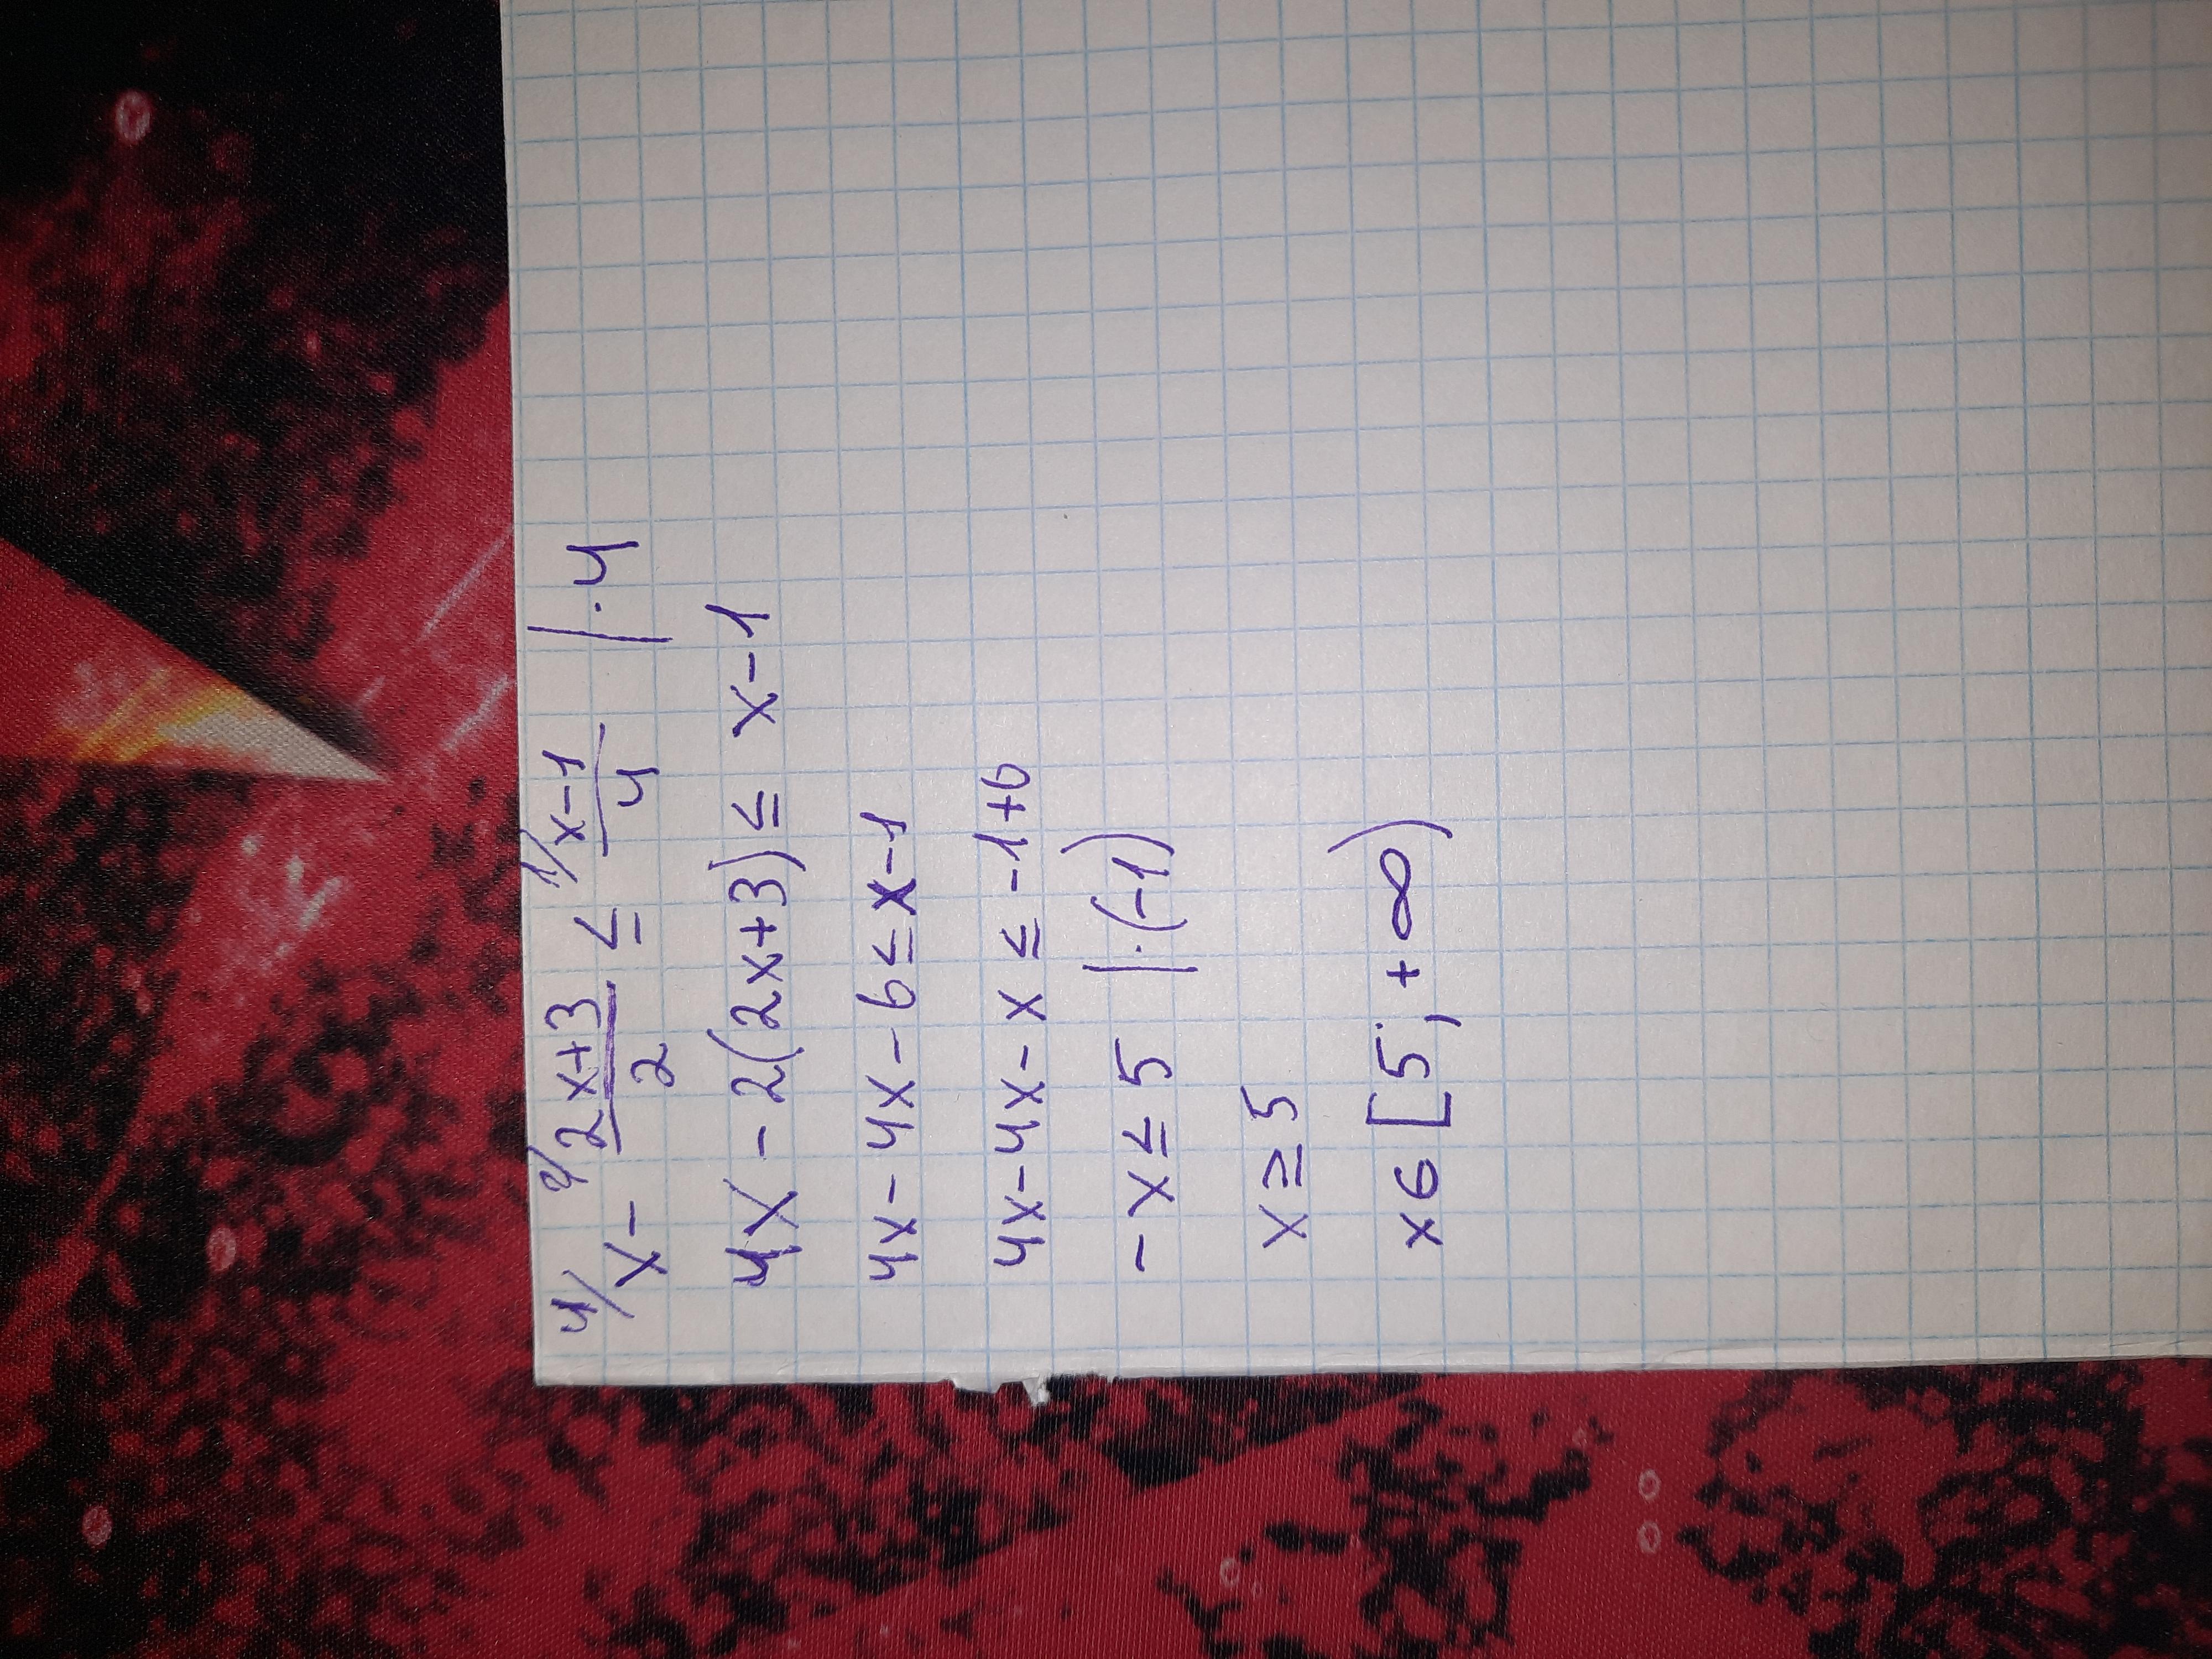 4/ x - 2/ (2x+3)/2 ≤ 1/ (x-1)/4 | · 4
4x - 2(2x+3) ≤ x-1
4x - 4x - 6 ≤ x-1
4x-4x-x ≤ -1+6
-x ≤ 5 | ·(-1)
x ≥ 5
x ϵ [5; +∞)